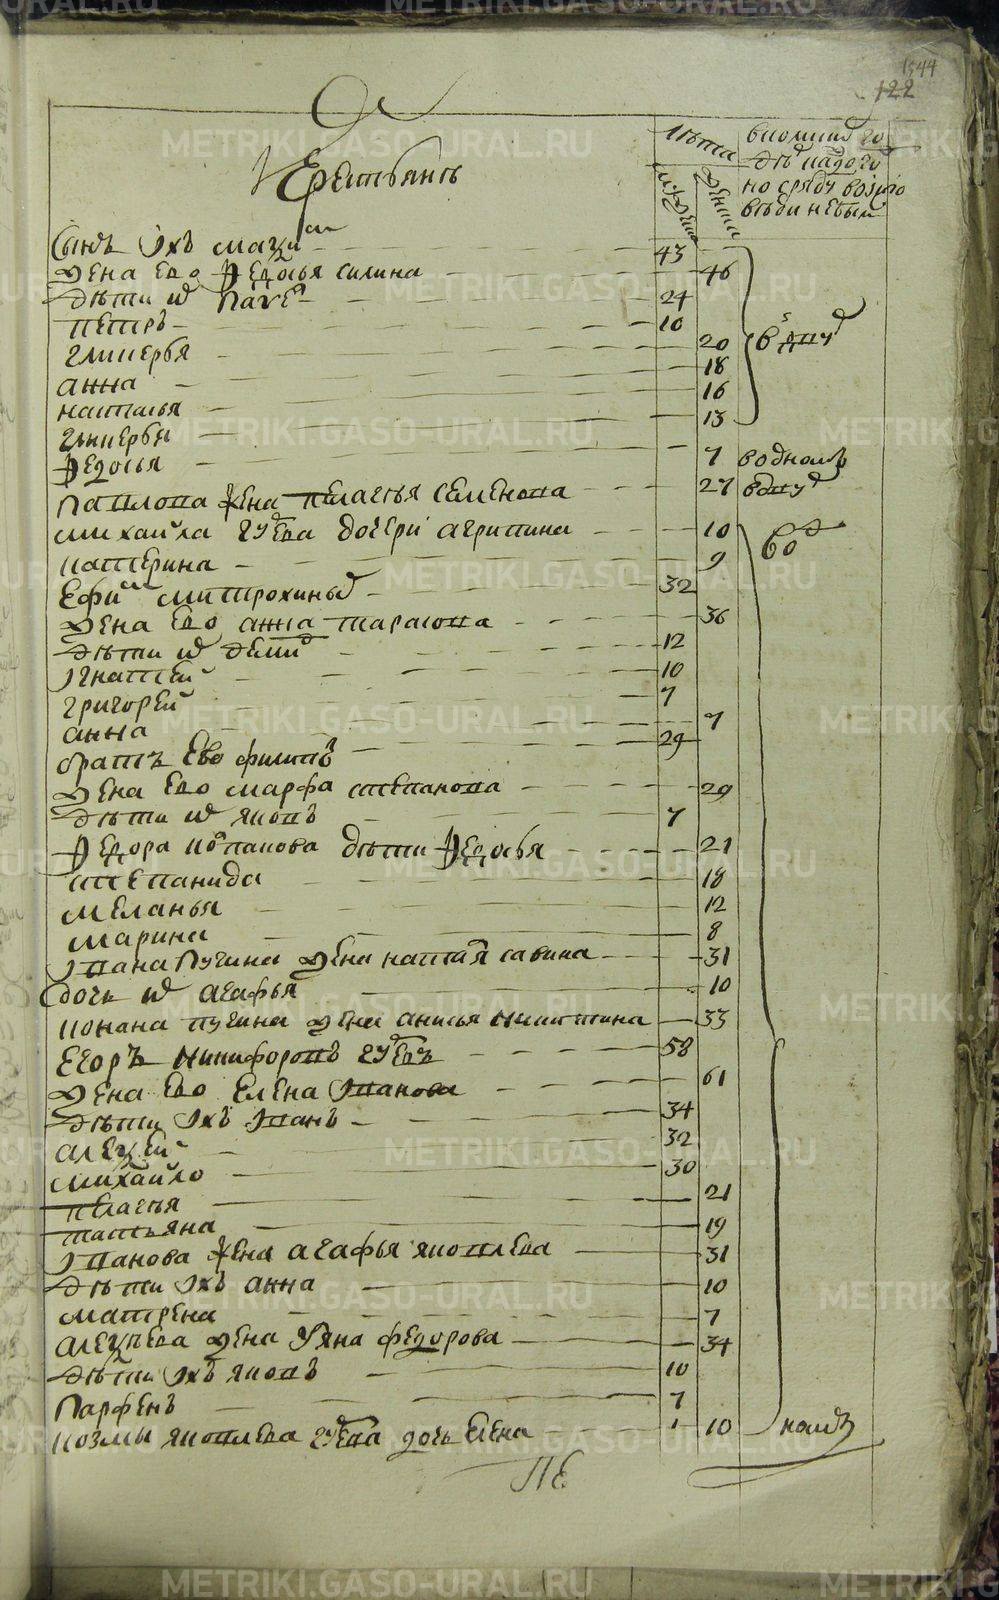 1544
122
Крестьянъ
Лѣта
мужеска
женска
Сынъ Ихъ маѯим 43
жена ево Ѳедосья силина 46
дѣти их павел 24
петръ 10
гликерья 20
анна 18
наталья 16
гликерья 13
Ѳедосья 7 водномъ
павлова жена пелагея семенова 27
михайла гуева дочери агрипина 10
катерина 9
Ефим митрохиных 32
жена Ево анна тарасова 36
дѣти их демид 12
Игнатей 10
григорей 7
анна 7
братъ Ево филипъ 29
жена Ево марфа степанова 29
дѣти их яковъ 7
Ѳедора потапова дѣти Ѳедосья 21
степанида 18
меланья 12
марина 8
Ивана пугина жена наталя савина 31
дочь их агафья 10
конана пугина жена анисья никитина 33
Егоръ никифоровъ гуевъ 58
жена Ево Елена Иванова 61
дѣти Ихъ Иванъ 34
алеѯей 32
михайло 30
пелагея 21
татьяна 19
Иванова жена агафья яковлева 31
дѣти Ихъ анна 10
матрена 7
алеѯѣева жена Уяна федорова 34
дѣти Ихъ яковъ 10
парфенъ 7
козмы яковлева гуева дочь елена 10